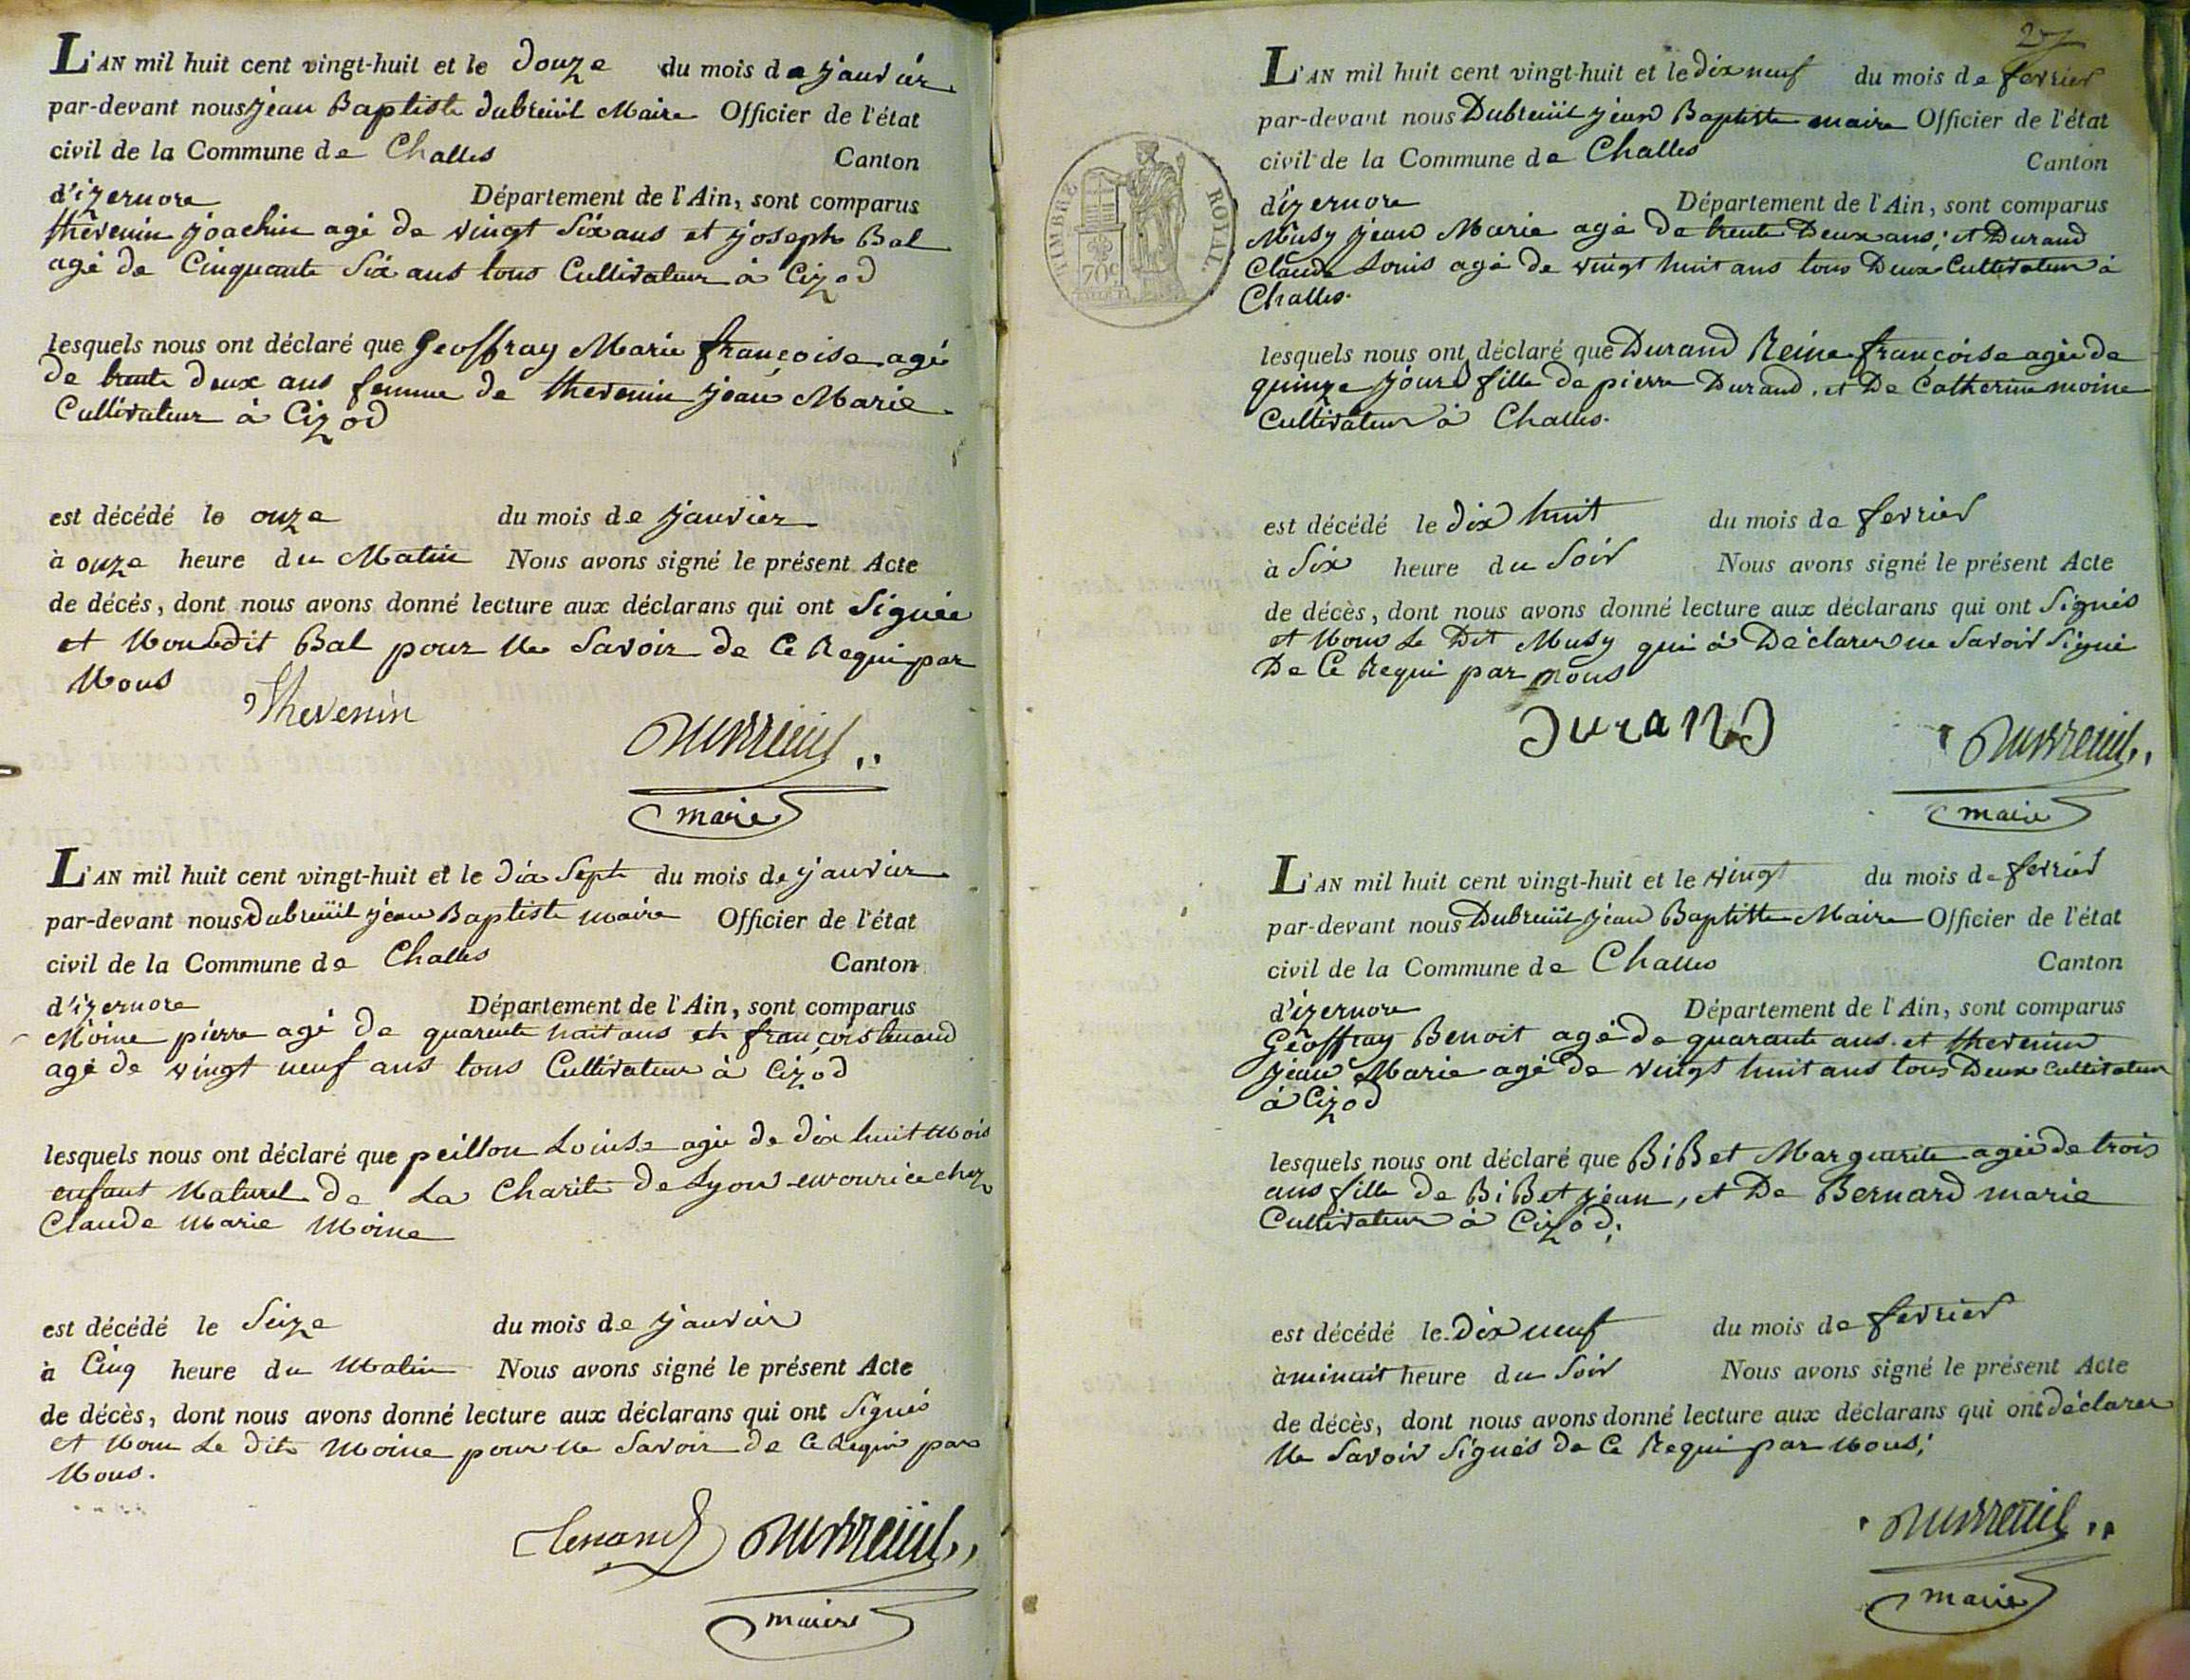 L'AN mil huit cent vingt-huit et le douze du mois de janvier
par-devant nous jean Baptiste dubreüil Maire Officier de l'état
civil de la Commune de Challes Canton
d'izernore Département de l'Ain, sont comparus
thévenin joachin agé de vingt Six ans et joseph Bal
agé de Cinquante Six ans tous Cultivateur à Cizod
lesquels nous ont déclaré que Geoffray Marie françoise agé
de trente deux ans femme de thevenin jean Marie
Cultivateur à Cizod
est décédé le onze du mois de janvier
à onze heure du Matin Nous avons signé le présent Acte
de décès, dont nous avons donné lecture aux déclarans qui ont Signée
et Non ledit Bal pour Ne Savoir de Ce Requi par
Nous
Thevenin
Dubreüil
maire
L'AN mil huit cent vingt-huit et le dix Sept du mois de janvier
par-devant nous Dubreüil jean Baptiste maire Officier de l'état
civil de la Commune de Challes Canton
d'izernore Département de l'Ain, sont comparus
Moine pierre agé de quarente huit ans et françois lenand
agé de vingt neuf ans tous Cultivateur à Cizod
lesquels nous ont déclaré que peillon Louise agée de dix huit Mois
enfant Naturel de La Charité de Lyon en nourice chez
Claude Marie Moine
est décédé le Seize du mois de janvier
à Cinq heure du Matin Nous avons signé le présent Acte
de décès, dont nous avons donné lecture aux déclarans qui ont Signés
et Non Le dit Moine pour Ne Savoir de Ce Requi par
Nous.
Lenand Dubreüil
maire
27
L'AN mil huit cent vingt-huit et le dix neuf du mois de fevrier
par-devant nous Dubreüil jean Baptiste maire Officier de l'état
civil de la Commune de Challes Canton
d'izernore Département de l'Ain, sont comparus
TIMBRE ROYAL
70c
Musy jean Marie agé de trente Deux ans; et Durand
Claude Louis agé de vingt huit ans tous Deux Cultivateur à
Challes.
lesquels nous ont déclaré que Durand Reine françoise agée de
quinze jours fille de pierre Durand, et De Catherine moine
Cultivateur à Challes.
est décédé le dix huit du mois de fevrier
à Six heure du Soir Nous avons signé le présent Acte
de décès, dont nous avons donné lecture aux déclarans qui ont Signés
et Non Le Dit Musy qui à Déclarer ne Savoir Signé
De Ce Requi par nous
Durand
Dubreüil
maire
L'AN mil huit cent vingt-huit et le vingt du mois de fevrier
par-devant nous Dubreüil jean Baptiste Maire Officier de l'état
civil de la Commune de Challes Canton
d'izernore Département de l'Ain, sont comparus
Geoffray Benoit agé de quarante ans et thevenin
jean Marie agé de vingt huit ans tous Deux Cultivateur
à Cizod
lesquels nous ont déclaré que BiBet Marguerite agée de trois
ans fille de BiBet jean, et De Bernard marie
Cultivateur à Cizod;
est décédé le Dix neuf du mois de fevrier
à minuit heure du Soir Nous avons signé le présent Acte
de décès, dont nous avons donné lecture aux déclarans qui ont déclarer
Ne Savoir Signés de Ce Requi par Nous;
Dubreüil
maire